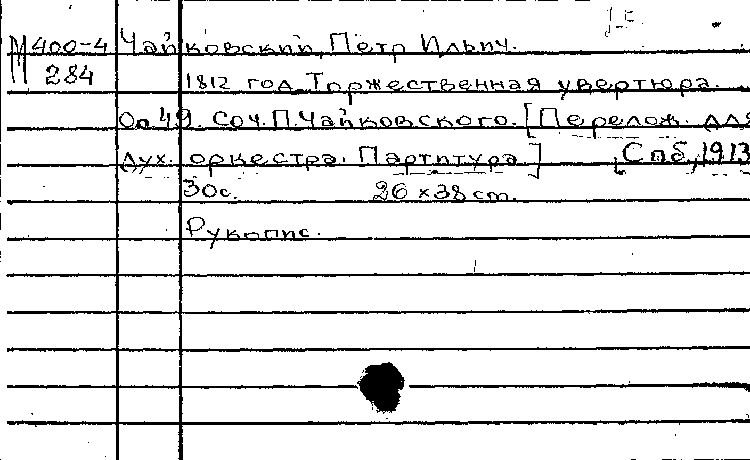 М400-4 Чайковский, Петр Ильич.
284 1812 год. Торжественная увертюра.
Оп 49. Соч. П. Чайковского. [Перелож. для
дух. оркестра. Партитура.] [Спб, 1913
30с. 26 x 38 cm.
Рукопис.